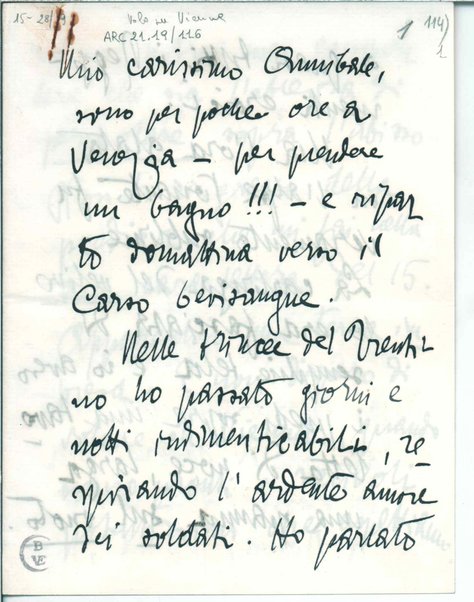 15-28/9 Volo su Vienna
ARC 21.19/116
1
114)
1
Mio carissimo Annibale,
sono per poche ore a
Venezia – per prendere
un bagno!!! – e ripar
to domattina verso il
Carso bevisangue.
Nelle trincee del Trenti-
no ho passato giorni e
notti indimenticabili, re-
spirando l'ardente amore
dei soldati. Ho parlato
B
VE